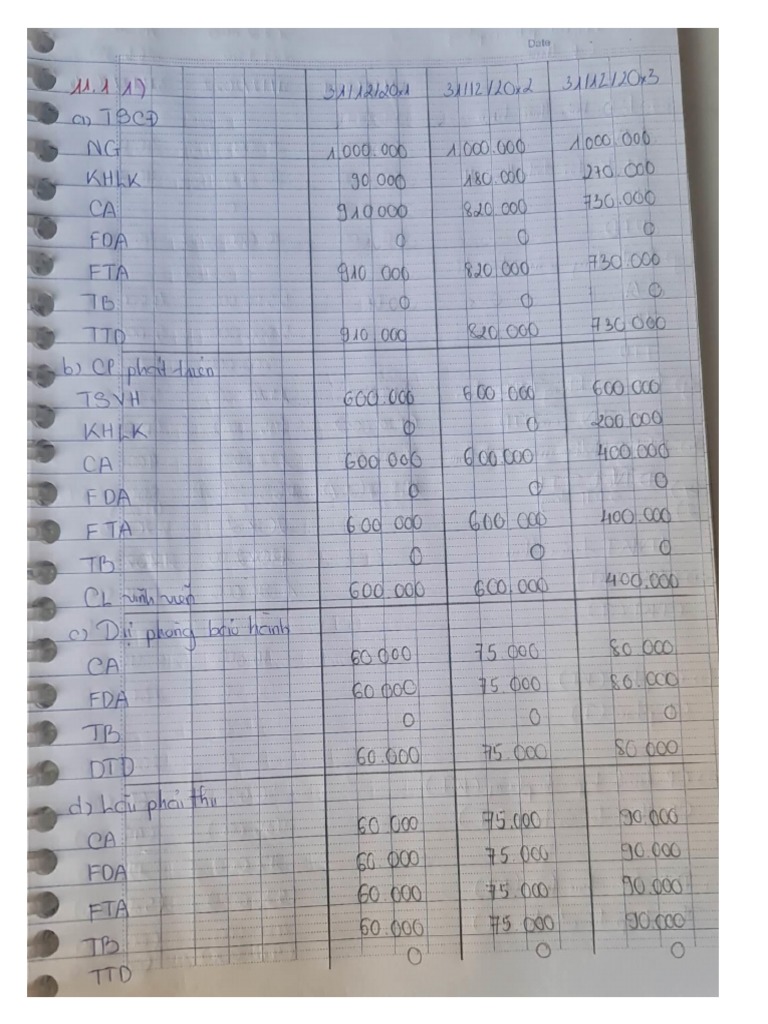 Date
11.1 1) 31/12/20x1 31/12/20x2 31/12/20x3
a) TSCĐ
NG 1.000.000 1.000.000 1.000.000
KHLK 90 000 180.000 270.000
CA 910000 820 000 730.000
FDA 0 0 0
FTA 910 000 820 000 730.000
TB 0 0 0
TTD 910 000 820 000 730 000
b) CP phát triển
TSVH 600.000 600 000 600 000
KHLK 0 0 200 000
CA 600 000 600.000 400 000
FDA 0 0 0
FTA 600 000 600 000 400.000
TB 0 0 0
CL vĩnh viễn 600 000 600.000 400.000
c) Dự phòng bảo hành
CA 60 000 75.000 80 000
FDA 60 000 75 000 80.000
TB 0 0 0
DTD 60.000 75.000 80 000
d) Lãi phải thu
CA 60 000 75.000 90.000
FDA 60 000 75 000 90.000
FTA 60.000 75.000 90.000
TB 60.000 75 000 90.000
TTD 0 0 0